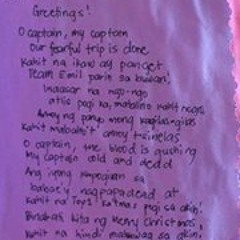 Greetings!
O captain, my captain
Our fearful trip is done
Kahit na ikaw ay panget
Team Emil parin sa buwan!
Inaasar na ngo-ngo
atis pag ika, mabalino kahit
Amoy ng panyo mong
Kahit mabaln't amoy tsinelas
O captain, the blood is gushing
My captain cold and dead
Ang iyong sa
babaey, nagpapadead at
Kahit na Toys! katmas pagi sa akin!
Binabati kita ng Merry Christmas,
Kahit na hindi sa akin.